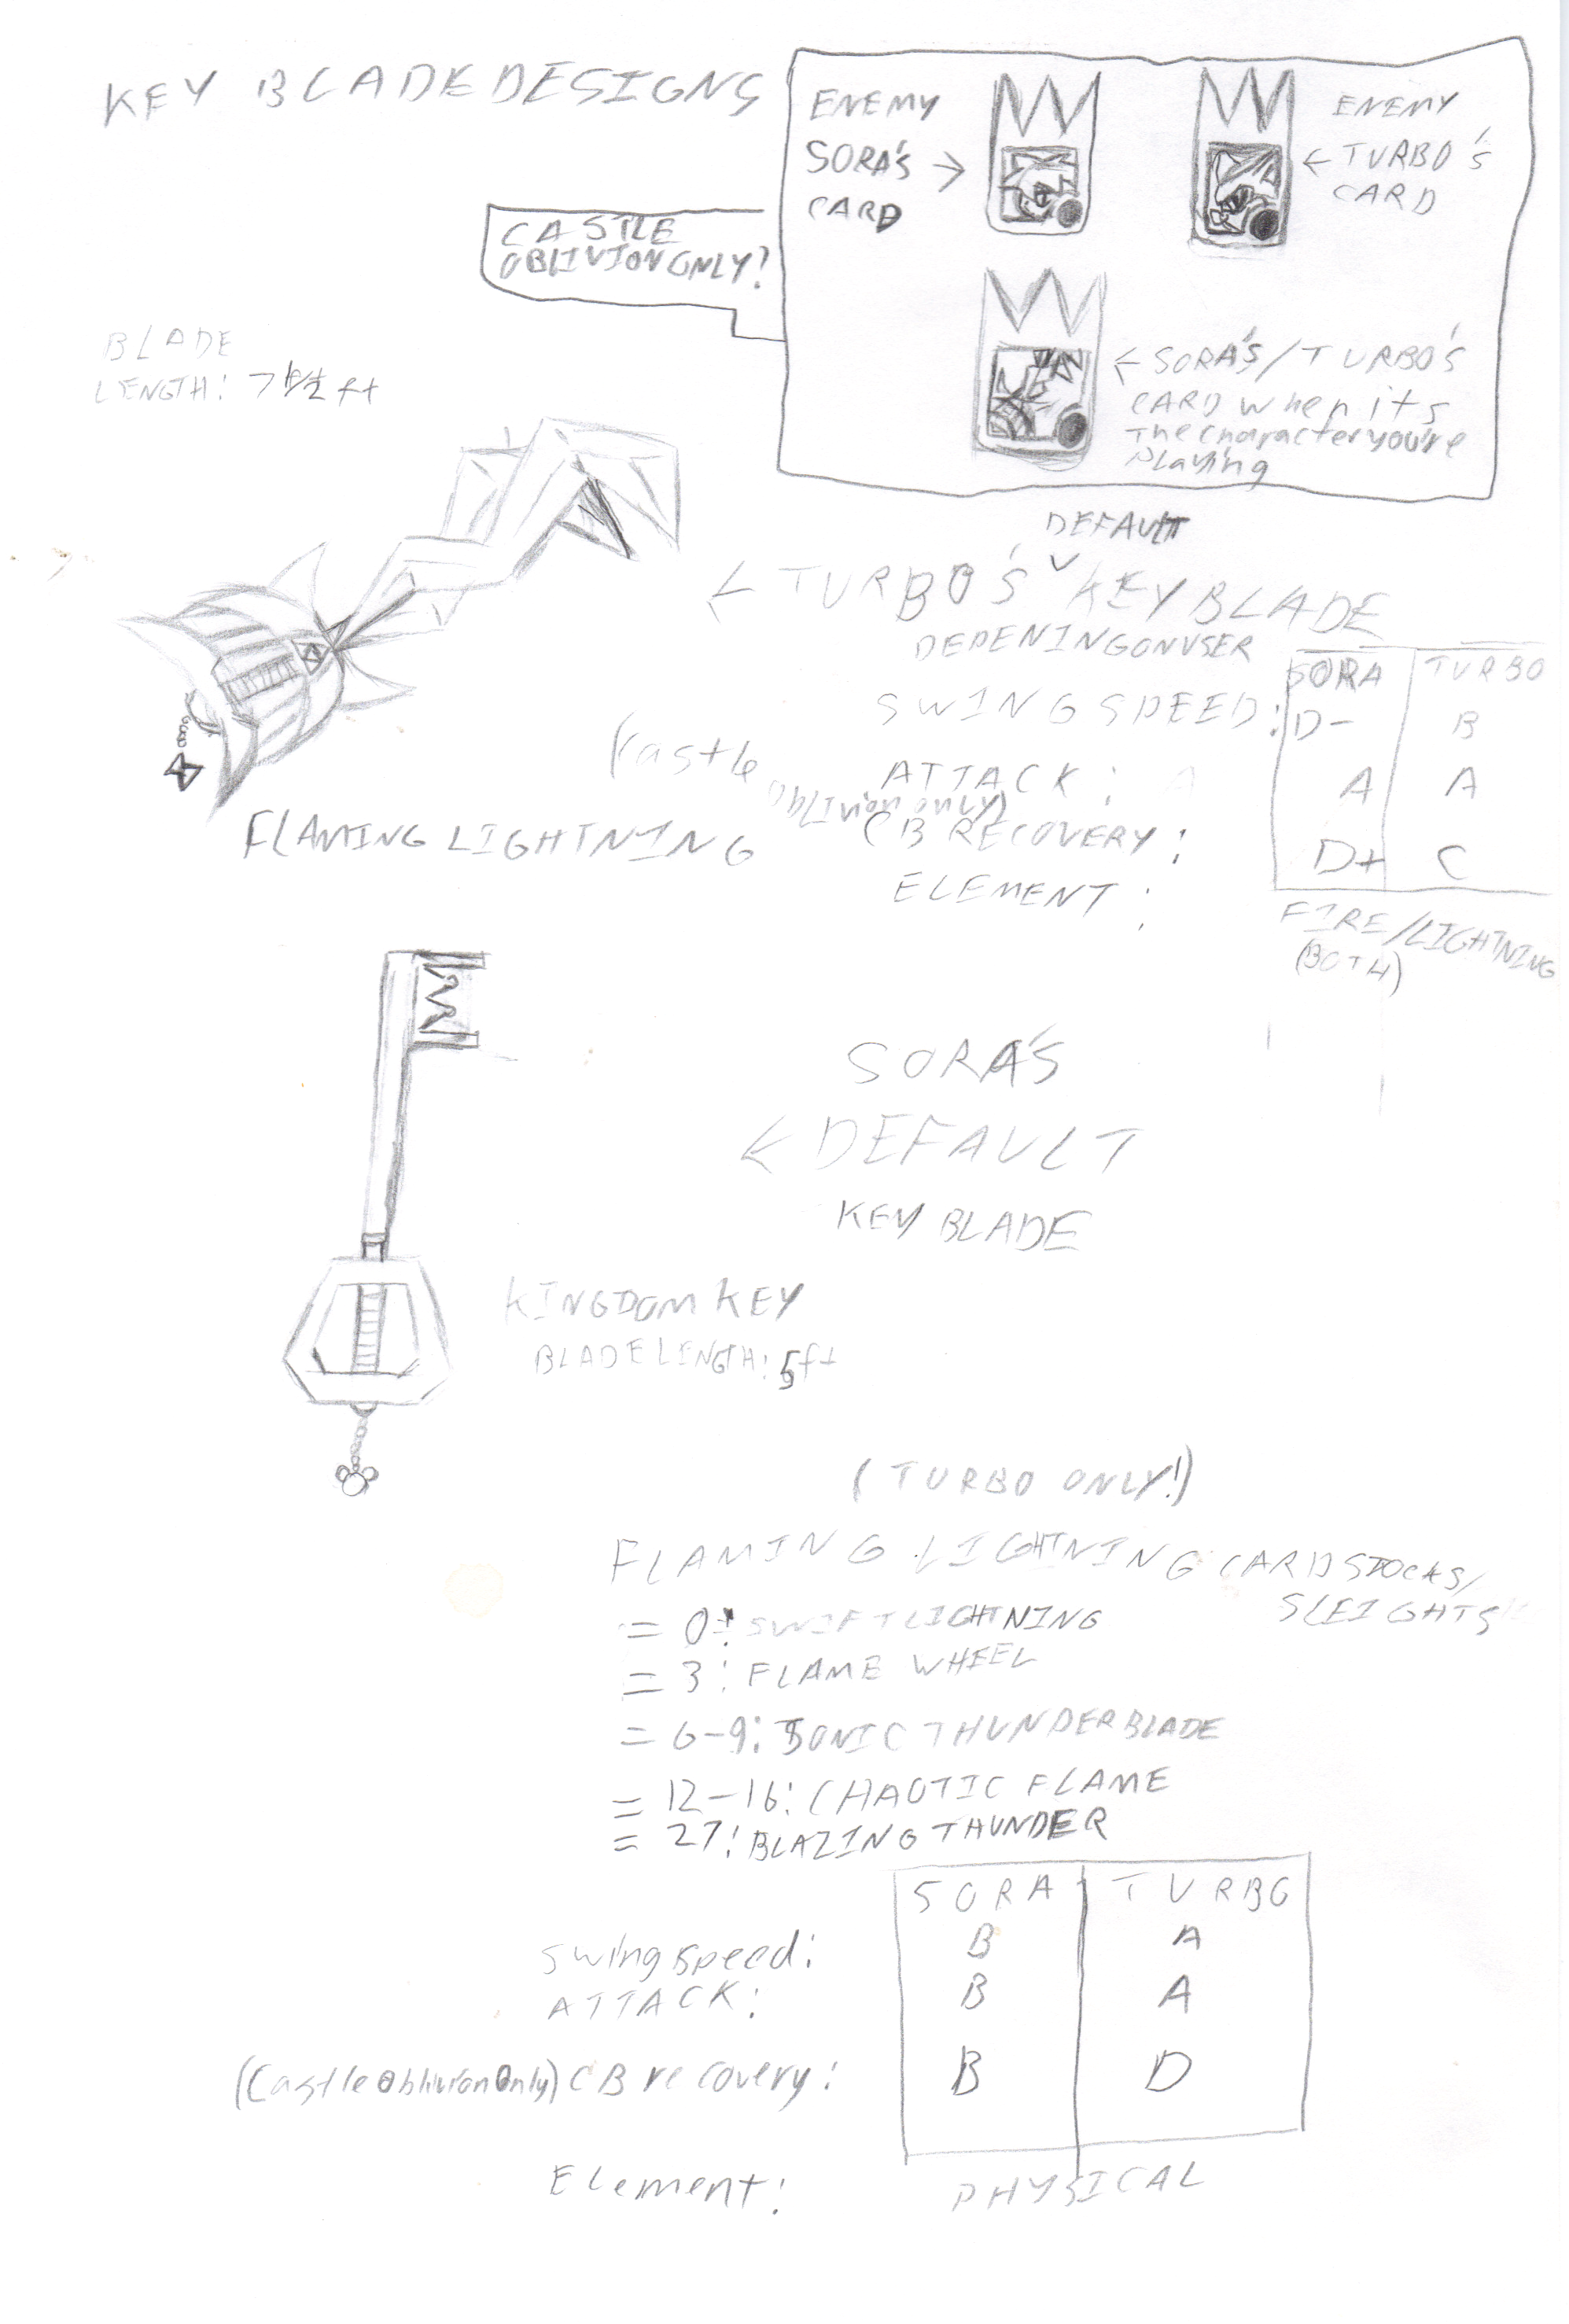 KEY BLADE DESIGNS
ENEMY
SORA'S →
CARD
ENEMY
← TURBO'S
CARD
CASTLE
OBLIVION ONLY!
← SORA'S/TURBO'S
CARD when it's
The character you're
Playing
BLADE
LENGTH: 7 1/2 ft
DEFAULT
← TURBO'S ˅ KEY BLADE
DEPENINGONUSER
SORA TURBO
SWING SPEED: D- B
ATTACK: A A
(Castle Oblivion only)
CB RECOVERY: D+ C
ELEMENT:
FIRE/LIGHTNING
(BOTH)
FLAMING LIGHTNING
SORA'S
← DEFAULT
KEY BLADE
KINGDOM KEY
BLADE LENGTH: 5ft
(TURBO ONLY!)
FLAMING LIGHTNING CARD STOCKS/
SLEIGHTS
= 0: SWIFT LIGHTNING
= 3: FLAME WHEEL
= 6-9: SONIC THUNDERBLADE
= 12-16: CHAOTIC FLAME
= 27: BLAZING THUNDER
SORA TURBO
Swing speed: B A
ATTACK: B A
(Castle Oblivion Only) CB recovery: B D
Element: PHYSICAL